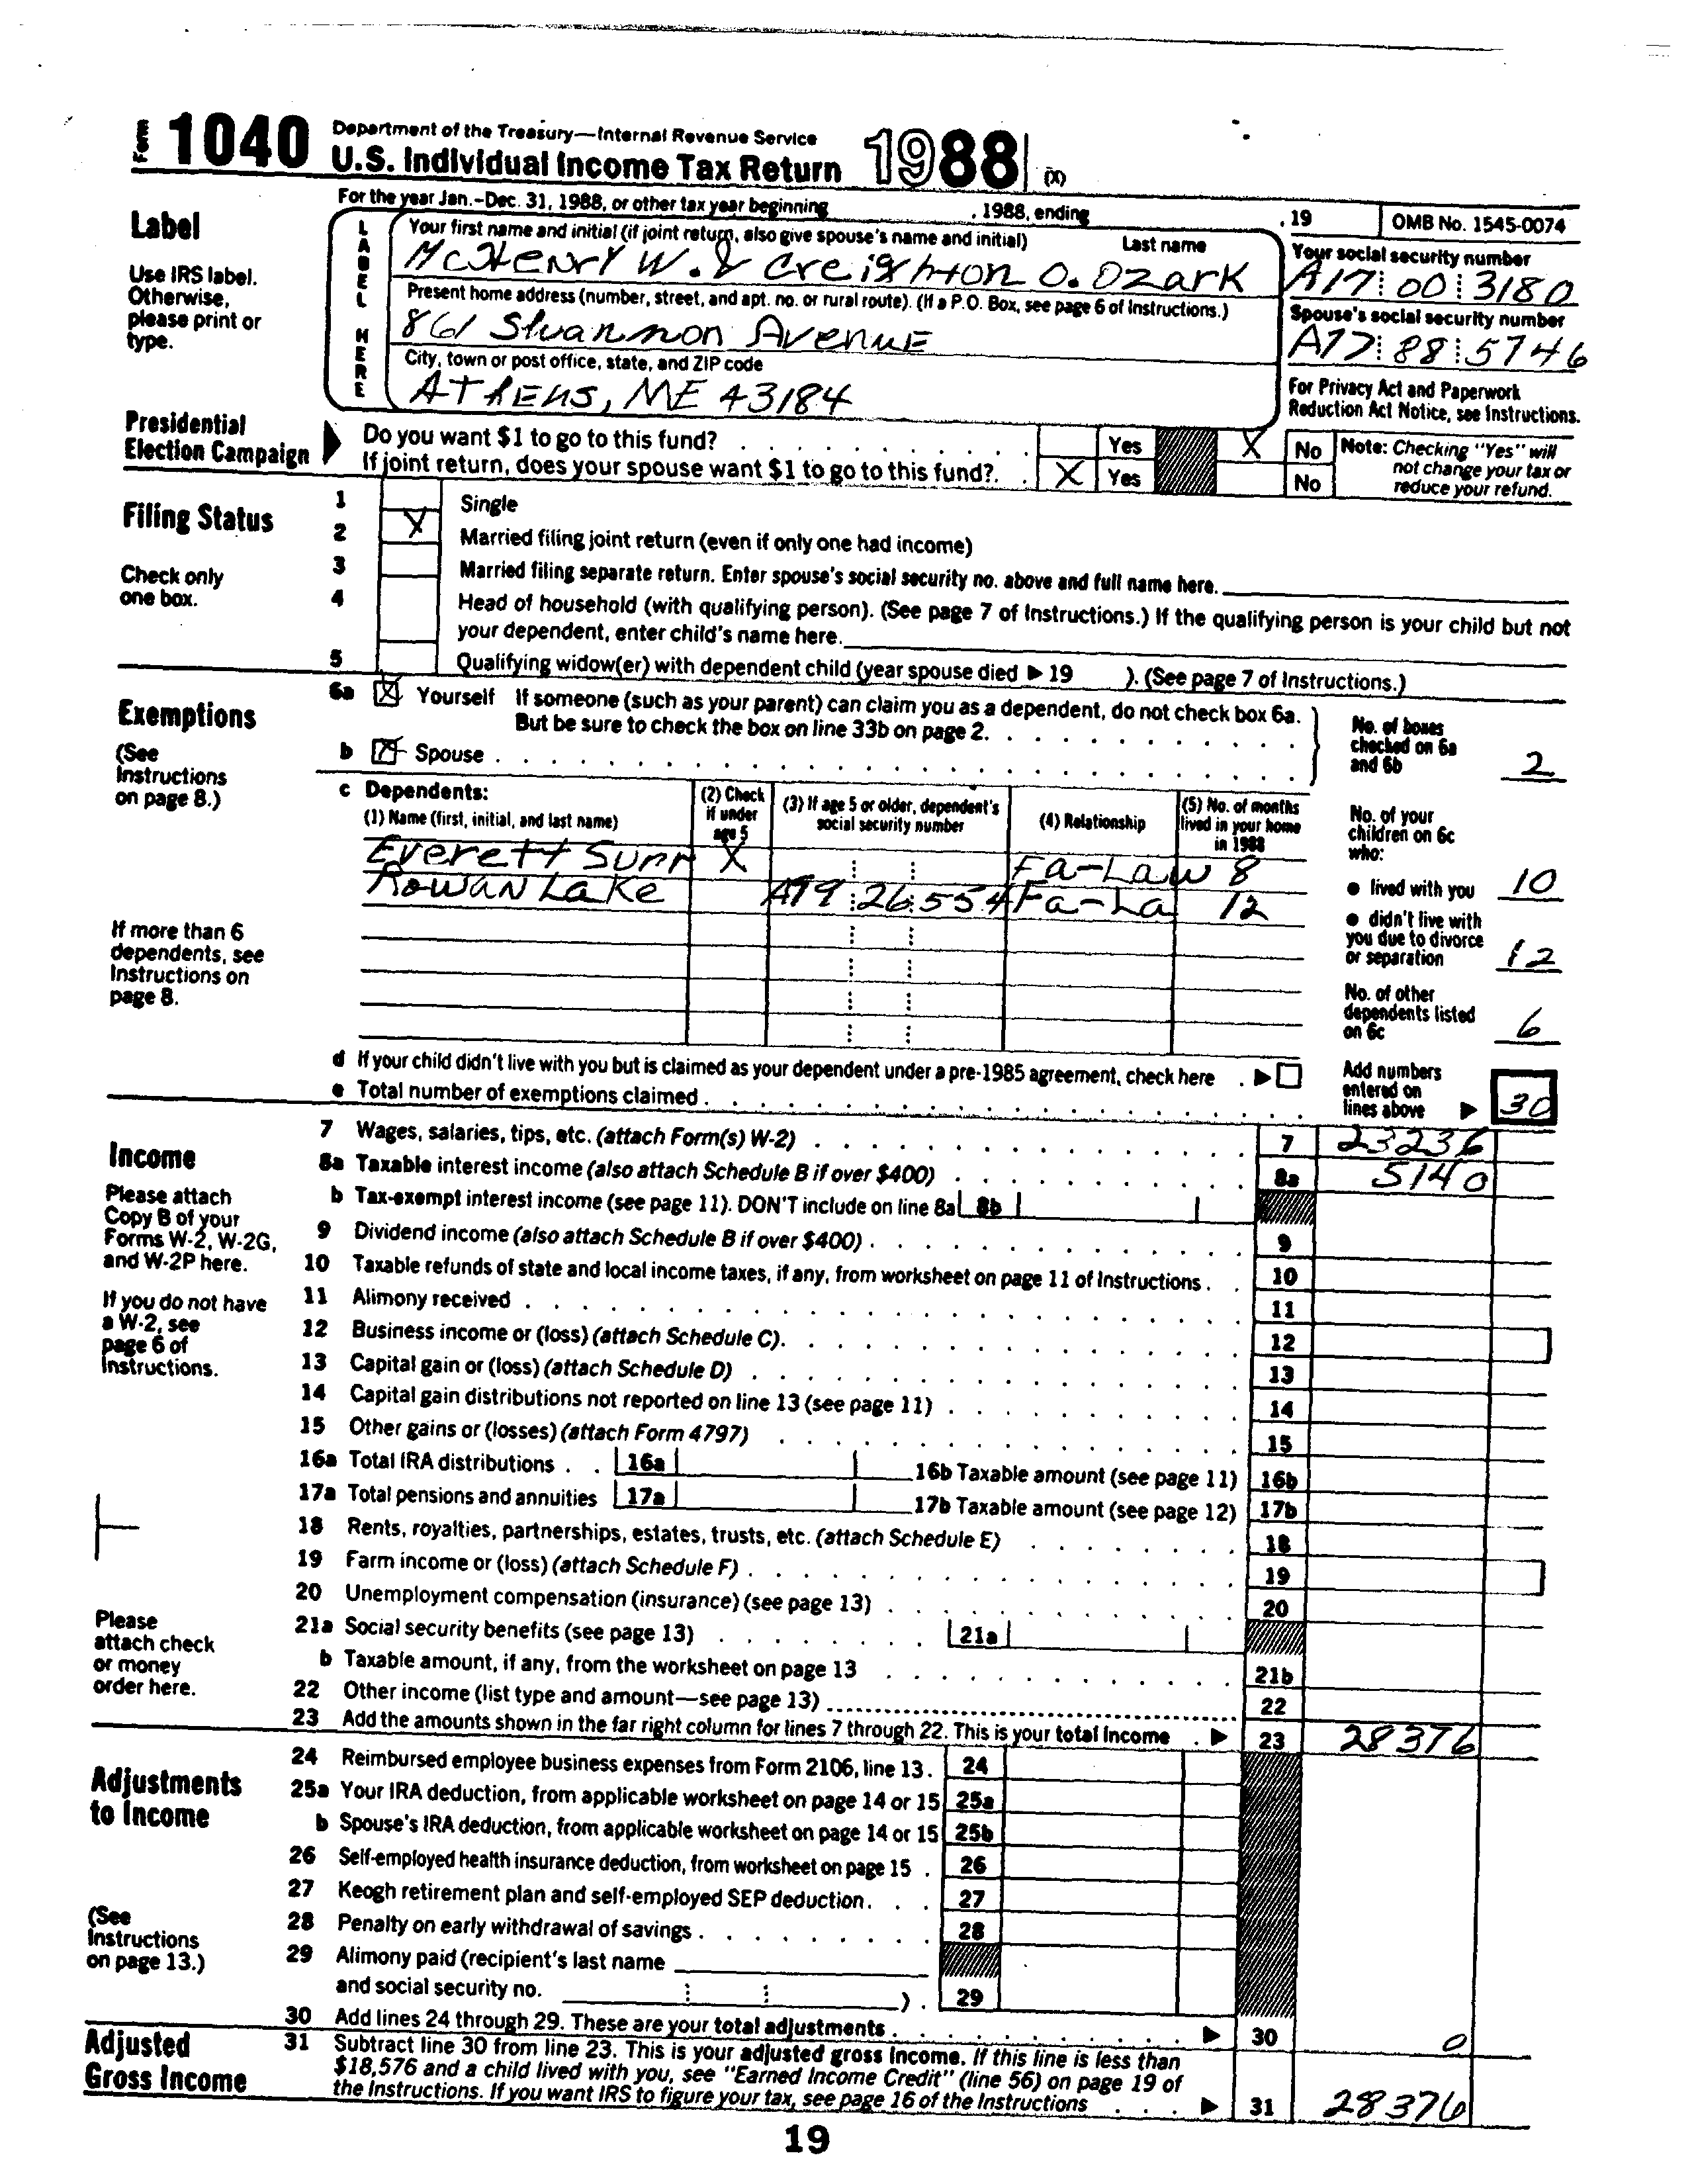 Form 1040 Department of the Treasury—Internal Revenue Service
U.S. Individual Income Tax Return 1988 (X)
For the year Jan.-Dec. 31, 1988, or other tax year beginning , 1988, ending , 19 OMB No. 1545-0074
Label
Use IRS label.
Otherwise,
please print or
type.
LABEL HERE
Your first name and initial (if joint return, also give spouse's name and initial) Last name
McHenry W. & Creighton O. Ozark
Your social security number
A17 00 3180
Present home address (number, street, and apt. no. or rural route). (If a P.O. Box, see page 6 of Instructions.)
861 Shannon Avenue
Spouse's social security number
A17 88 5746
City, town or post office, state, and ZIP code
Athens, ME 43184
For Privacy Act and Paperwork
Reduction Act Notice, see Instructions.
Presidential
Election Campaign
Do you want $1 to go to this fund? Yes X No
If joint return, does your spouse want $1 to go to this fund?. X Yes No
Note: Checking "Yes" will
not change your tax or
reduce your refund.
Filing Status
Check only
one box.
1 Single
2 X Married filing joint return (even if only one had income)
3 Married filing separate return. Enter spouse's social security no. above and full name here.
4 Head of household (with qualifying person). (See page 7 of Instructions.) If the qualifying person is your child but not
your dependent, enter child's name here.
5 Qualifying widow(er) with dependent child (year spouse died ▶ 19 ). (See page 7 of Instructions.)
Exemptions
(See
Instructions
on page 8.)
6a X Yourself If someone (such as your parent) can claim you as a dependent, do not check box 6a.
But be sure to check the box on line 33b on page 2.
b X Spouse
No. of boxes
checked on 6a
and 6b 2
c Dependents:
(1) Name (first, initial, and last name)
(2) Check
if under
age 5
(3) If age 5 or older, dependent's
social security number
(4) Relationship
(5) No. of months
lived in your home
in 1988
Everett Surr X Fa-Law 8
Rowan Lake A79 26 554 Fa-La 12
If more than 6
dependents, see
Instructions on
page 8.
No. of your
children on 6c
who:
● lived with you 10
● didn't live with
you due to divorce
or separation 12
No. of other
dependents listed
on 6c 6
d If your child didn't live with you but is claimed as your dependent under a pre-1985 agreement, check here . ▶
e Total number of exemptions claimed
Add numbers
entered on
lines above ▶ 30
Income
Please attach
Copy B of your
Forms W-2, W-2G,
and W-2P here.
If you do not have
a W-2, see
page 6 of
Instructions.
Please
attach check
or money
order here.
7 Wages, salaries, tips, etc. (attach Form(s) W-2) 7 23236
8a Taxable interest income (also attach Schedule B if over $400) 8a 5140
b Tax-exempt interest income (see page 11). DON'T include on line 8a 8b
9 Dividend income (also attach Schedule B if over $400) 9
10 Taxable refunds of state and local income taxes, if any, from worksheet on page 11 of Instructions 10
11 Alimony received 11
12 Business income or (loss) (attach Schedule C) 12
13 Capital gain or (loss) (attach Schedule D) 13
14 Capital gain distributions not reported on line 13 (see page 11) 14
15 Other gains or (losses) (attach Form 4797) 15
16a Total IRA distributions 16a 16b Taxable amount (see page 11) 16b
17a Total pensions and annuities 17a 17b Taxable amount (see page 12) 17b
18 Rents, royalties, partnerships, estates, trusts, etc. (attach Schedule E) 18
19 Farm income or (loss) (attach Schedule F) 19
20 Unemployment compensation (insurance) (see page 13) 20
21a Social security benefits (see page 13) 21a
b Taxable amount, if any, from the worksheet on page 13 21b
22 Other income (list type and amount—see page 13) 22
23 Add the amounts shown in the far right column for lines 7 through 22. This is your total income . ▶ 23 28376
Adjustments
to Income
(See
Instructions
on page 13.)
24 Reimbursed employee business expenses from Form 2106, line 13 . 24
25a Your IRA deduction, from applicable worksheet on page 14 or 15 25a
b Spouse's IRA deduction, from applicable worksheet on page 14 or 15 25b
26 Self-employed health insurance deduction, from worksheet on page 15 . 26
27 Keogh retirement plan and self-employed SEP deduction 27
28 Penalty on early withdrawal of savings 28
29 Alimony paid (recipient's last name
and social security no. ). 29
30 Add lines 24 through 29. These are your total adjustments ▶ 30 0
Adjusted
Gross Income
31 Subtract line 30 from line 23. This is your adjusted gross income. If this line is less than
$18,576 and a child lived with you, see "Earned Income Credit" (line 56) on page 19 of
the Instructions. If you want IRS to figure your tax, see page 16 of the Instructions ▶ 31 28376
19